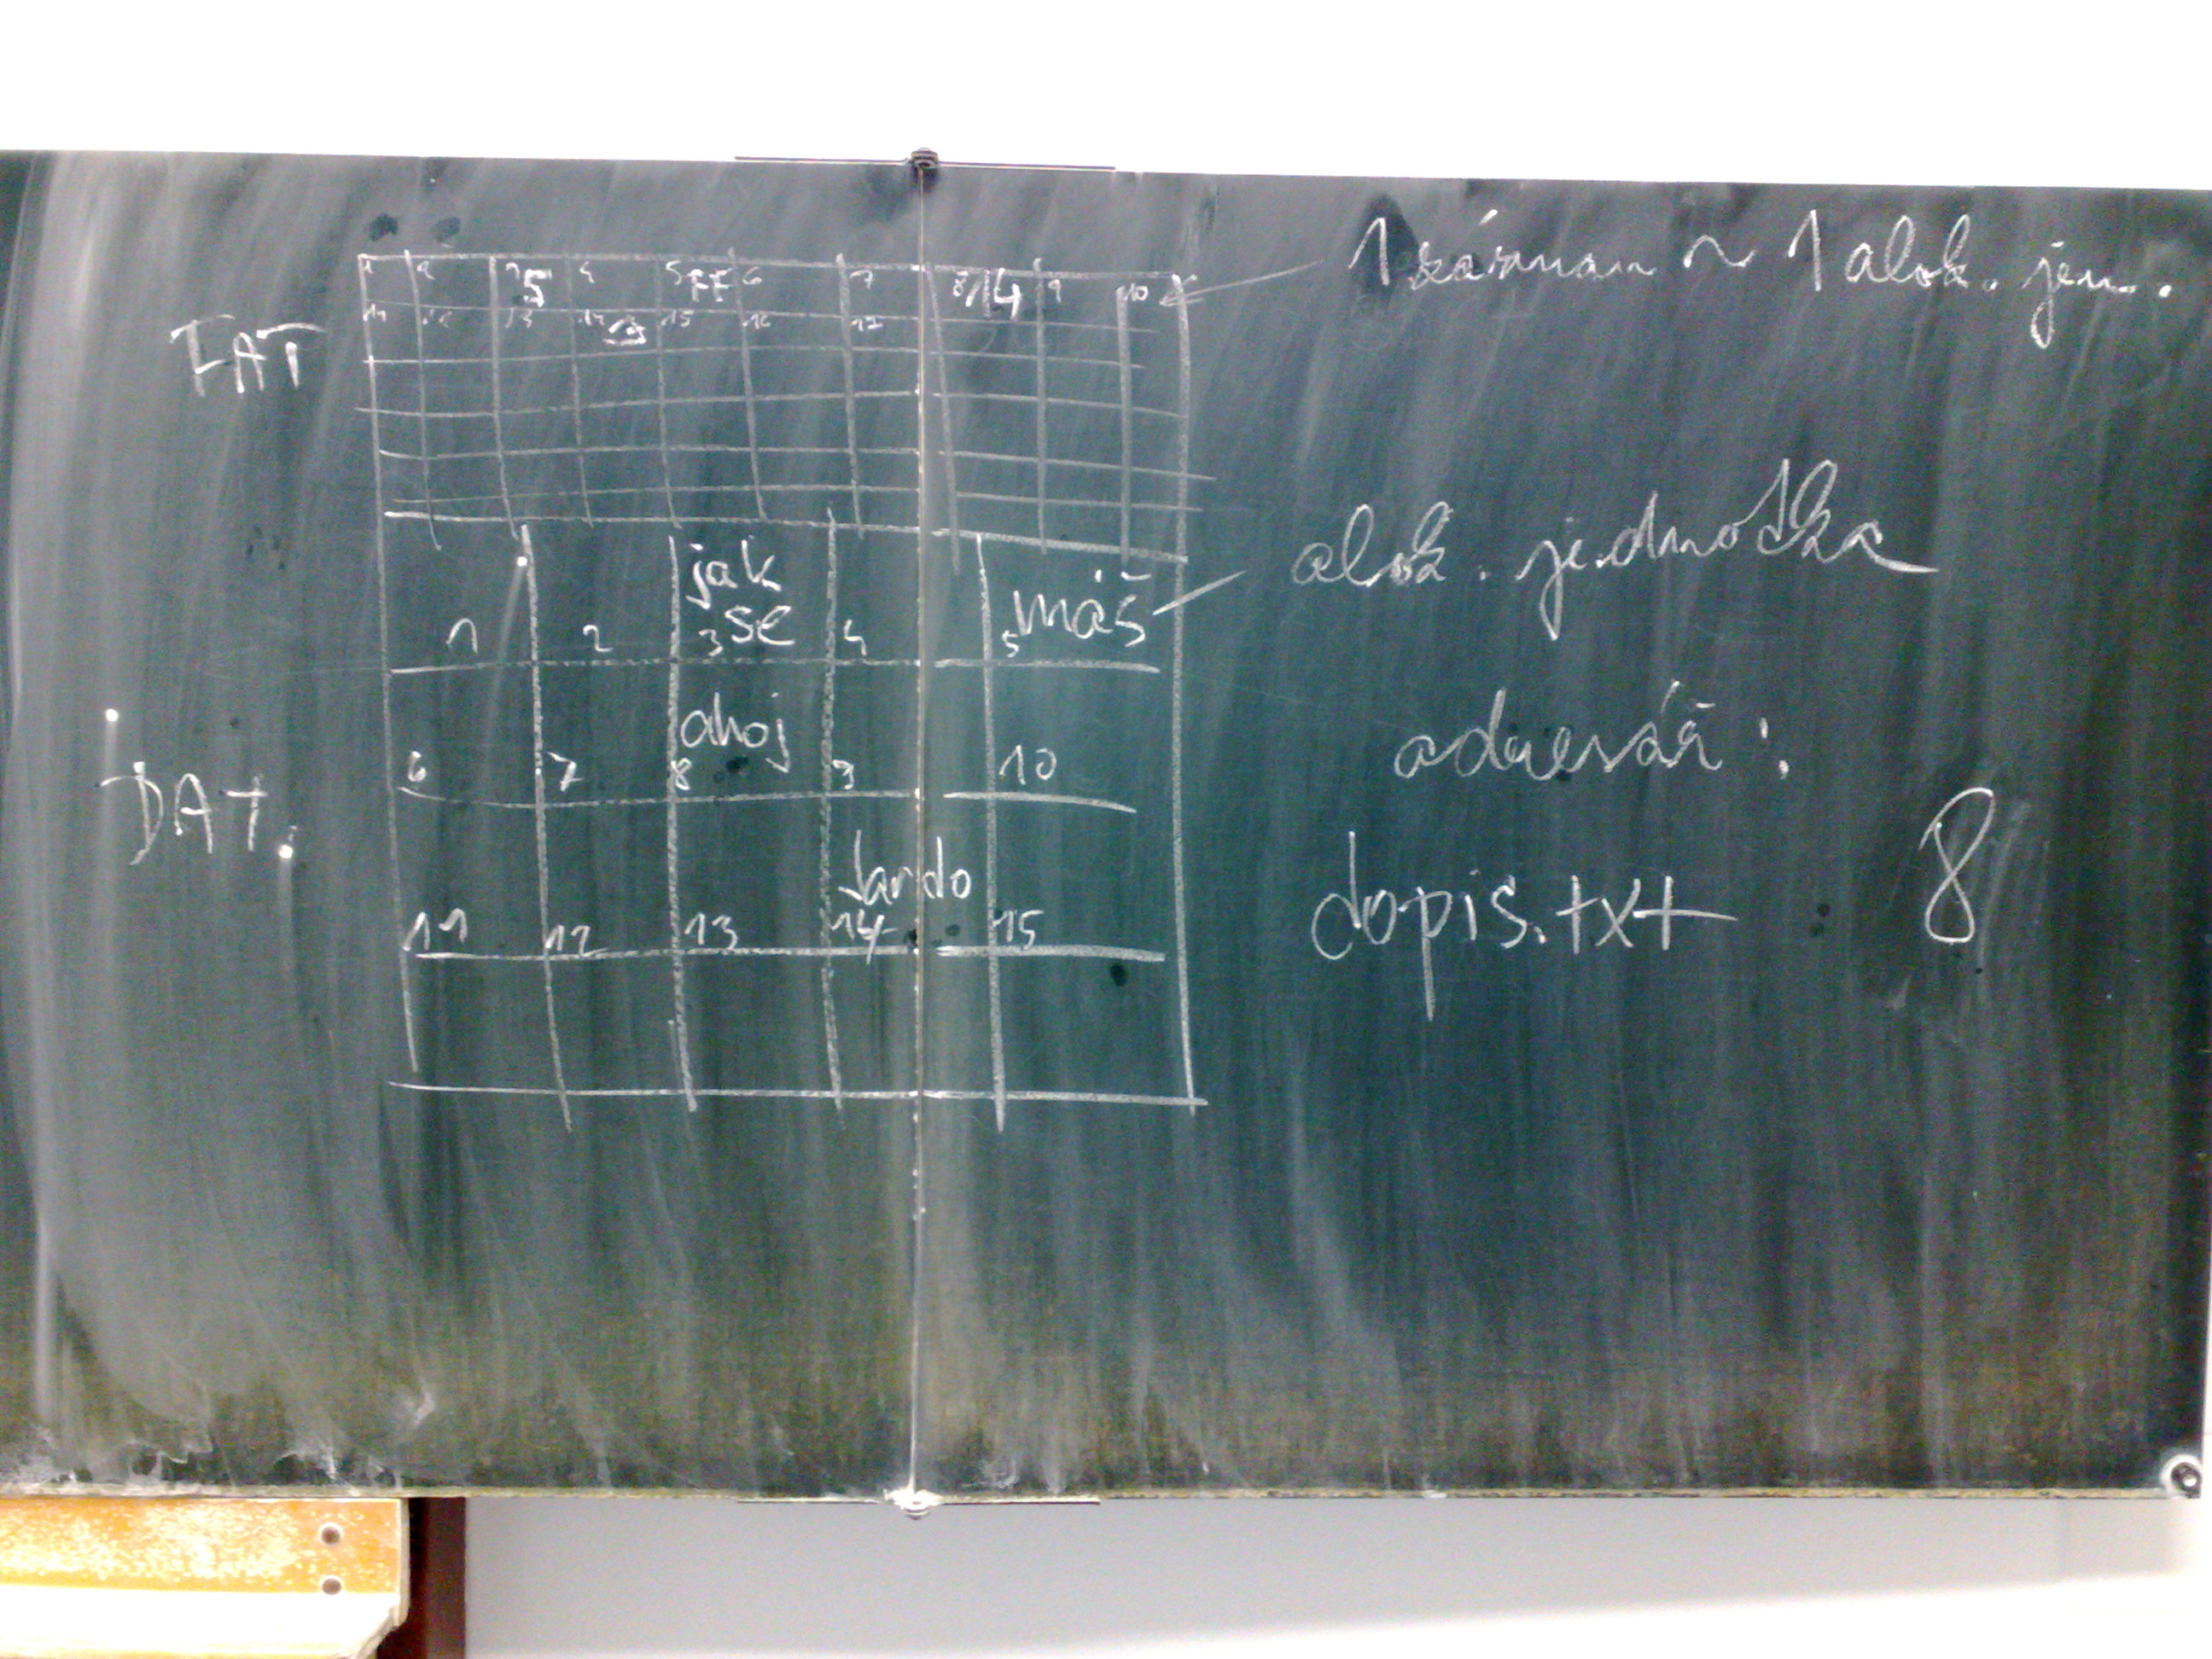 1 záznam ~ 1 alok. jen.
1 2 3 5 4 5 FF 6 7 8 14 9 10
FAT
11 12 13 14 3 15 16 17
alok. jednotka
jak
se
máš
1 2 3 4 5
adresář:
ahoj
6 7 8 9 10
DAT.
dopis.txt 8
Jardo
11 12 13 14 15